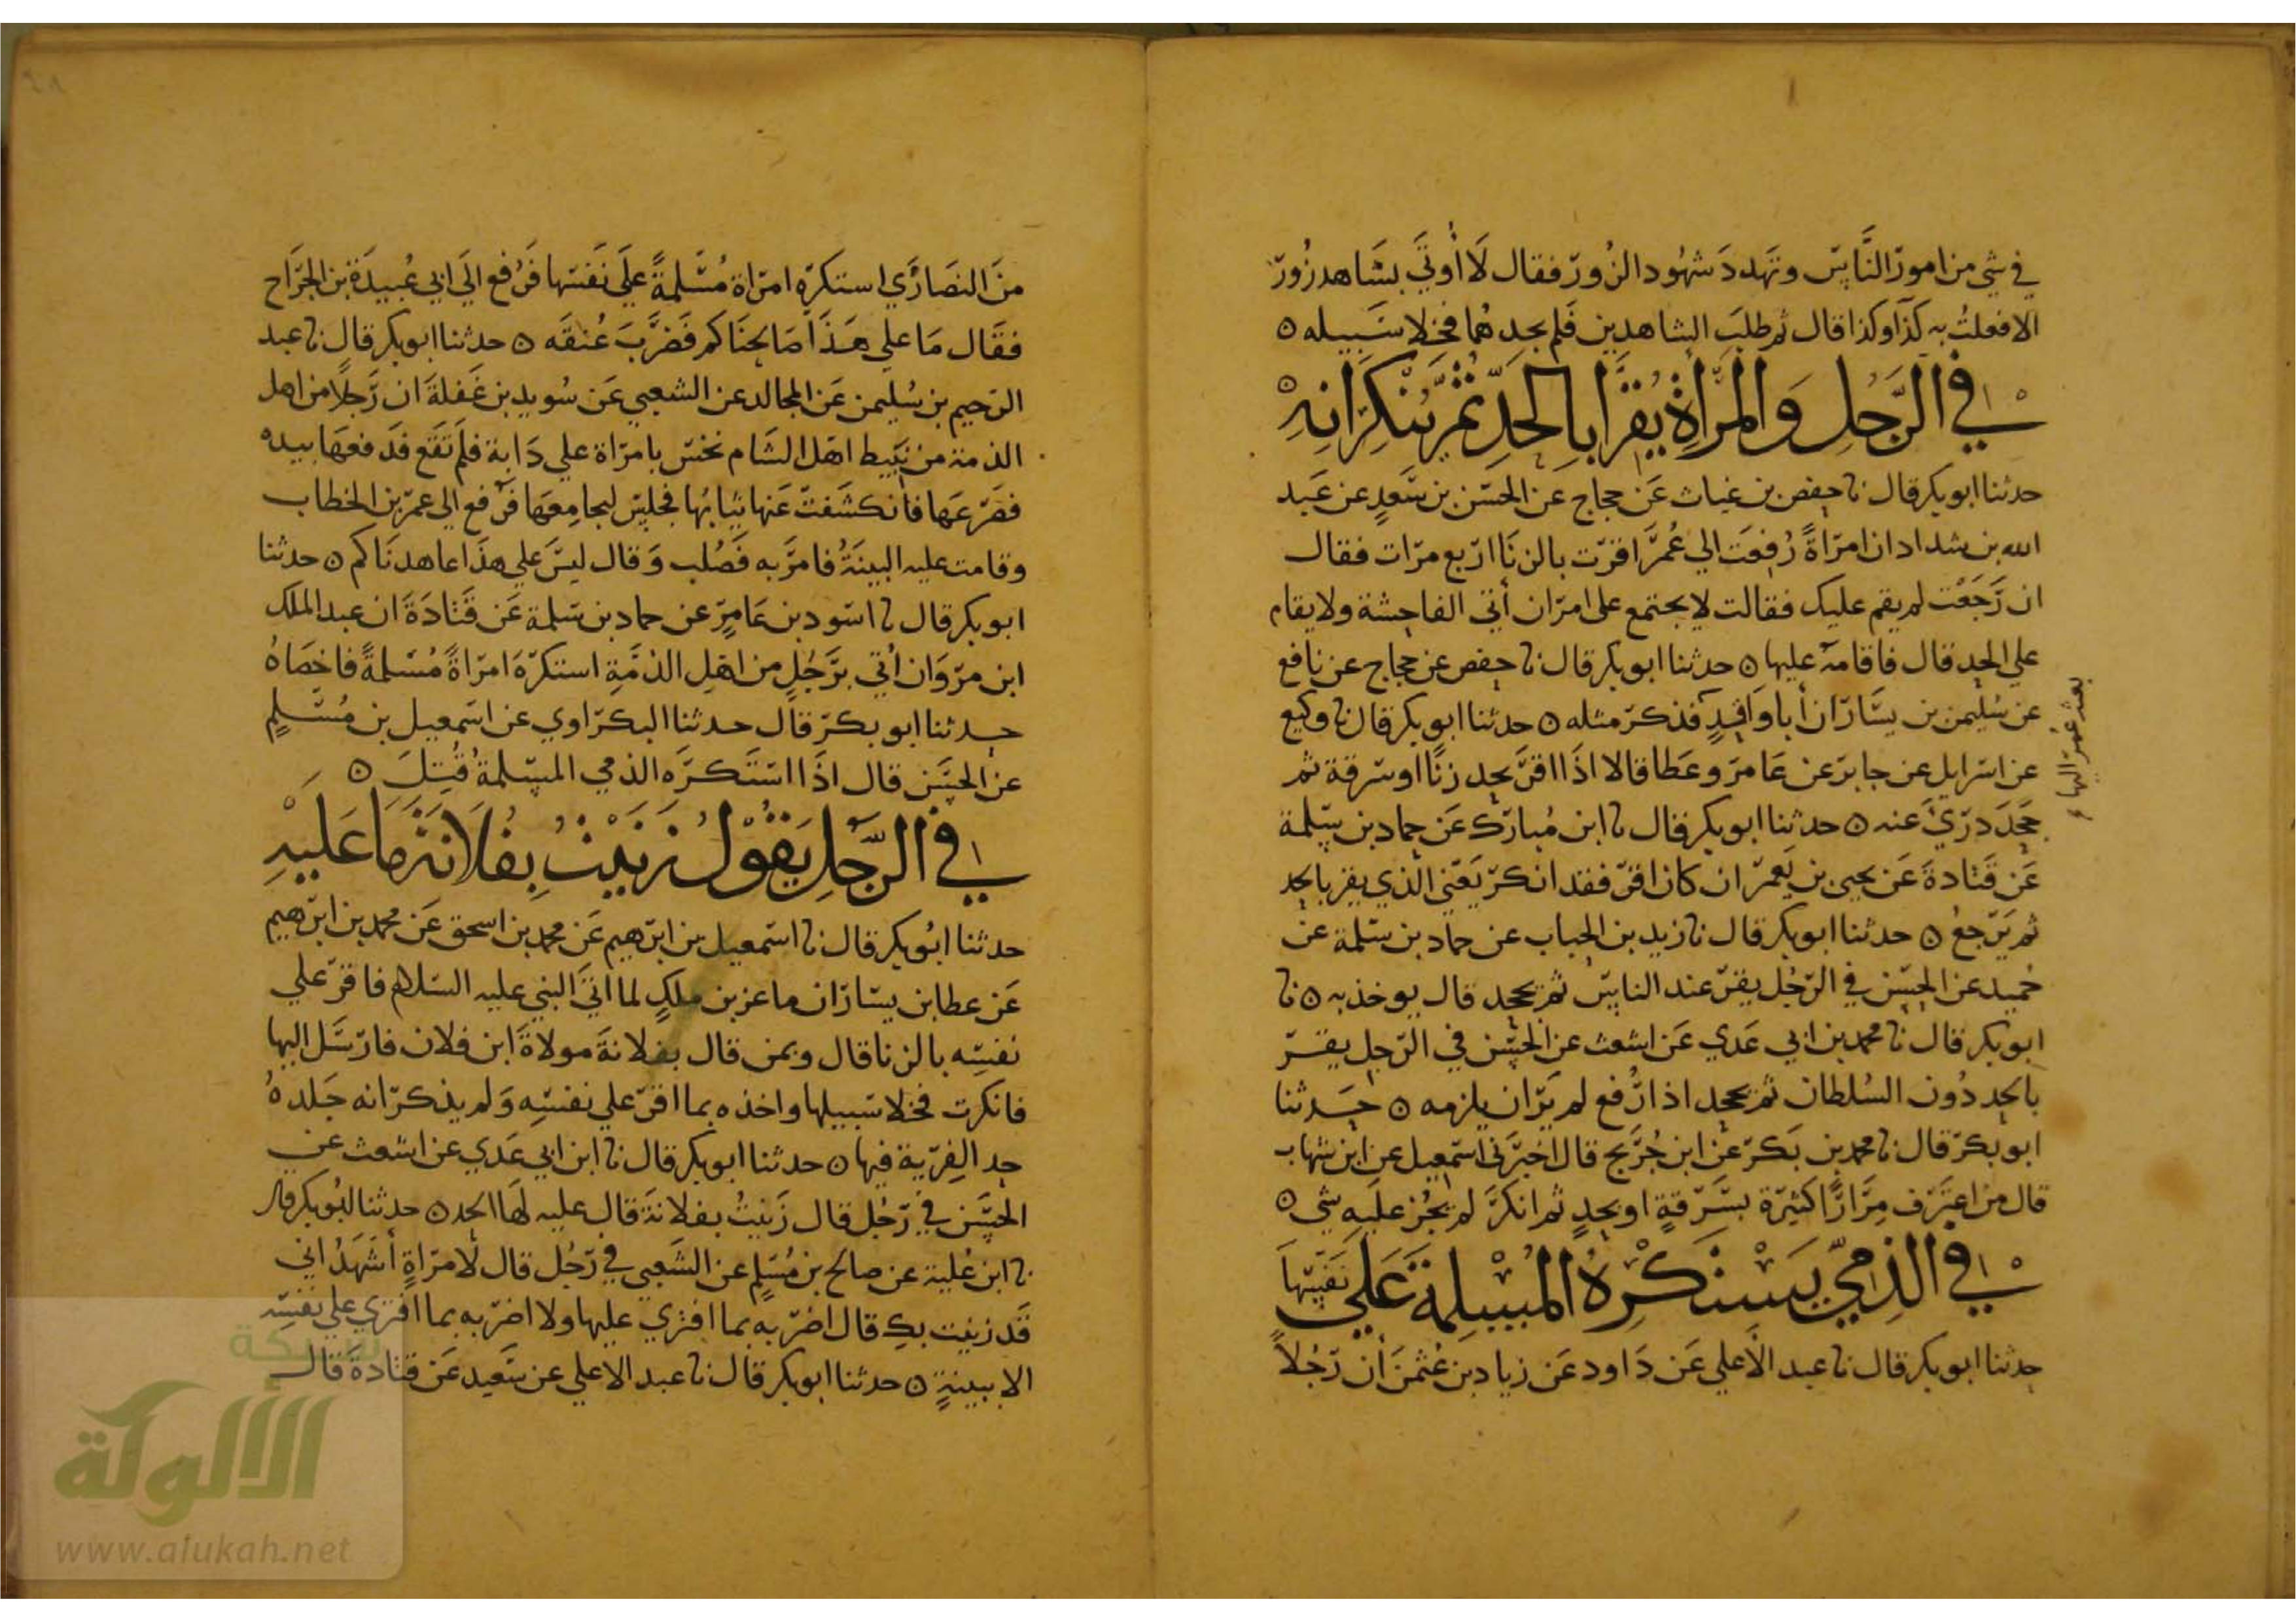 في شي من امور الناس وتهدد شهود الزور فقال لا أوتي بشاهد زور
الا فعلت به كذا وكذا قال ثم طلب الشاهدين فلم يجدهما فخلا سبيله ٥
في الرجل والمراة يقرا بالحد ثم ينكرانه
حدثنا ابو بكر قال نا حفص بن غياث عن حجاج عن الحسن بن سعد عن عبد
الله بن شداد ان امراة رفعت الي عمر اقرت بالزنا اربع مرات فقال
ان رجعت لم يقم عليك فقالت لا يجتمع على امران أتي الفاحشة ولا يقام
علي الحد قال فاقامه عليها ٥ حدثنا ابو بكر قال نا حفص عن حجاج عن نافع
عن سليمن بن يسار ان أبا واقد فذكر مثله ٥ حدثنا ابو بكر قال نا وكيع
بعثه عمر اليها
عن اسرايل عن جابر عن عامر وعطا قالا اذا اقر بحد زنا او سرقة ثم
جحد دري عنه ٥ حدثنا ابو بكر قال نا ابن مبارك عن حماد بن سلمة
عن قتادة عن يحيى بن يعمر ان كان اقر فقد انكر يعني الذي يقر بالحد
ثم يرجع ٥ حدثنا ابو بكر قال نا زيد بن الحباب عن حماد بن سلمة عن
حميد عن الحسن في الرجل يقر عند الناس ثم يجحد قال يوخذ به ٥ نا
ابو بكر قال نا محمد بن ابي عدي عن اشعث عن الحسن في الرجل يقر
بالحد دون السلطان ثم يجحد اذا رفع لم ير ان يلزمه ٥ حدثنا
ابو بكر قال نا محمد بن بكر عن ابن جريج قال اخبرني اسمعيل عن ابن شهاب
قال من اعترف مرارا كثيرة بسرقة او بحد ثم انكر لم يجز عليه شي ٥
في الذمي يستكره المسلمة علي نفسها
حدثنا ابو بكر قال نا عبد الأعلي عن داود عن زياد بن عثمن أن رجلا
من النصاري استكره امراة مسلمة علي نفسها فرفع الي ابي عبيدة بن الجراح
فقال ما علي هذا صالحناكم فضرب عنقه ٥ حدثنا ابو بكر قال نا عبد
الرحيم بن سليمن عن المجالد عن الشعبي عن سويد بن غفلة ان رجلا من اهل
الذمة من نبيط اهل الشام نخس بامراة علي دابة فلم تقع فدفعها بيده
فصرعها فانكشفت عنها ثيابها فجلس ليجامعها فرفع الي عمر بن الخطاب
وقامت عليه البينة فامر به فصلب وقال ليس علي هذا عاهدناكم ٥ حدثنا
ابو بكر قال نا اسود بن عامر عن حماد بن سلمة عن قتادة ان عبد الملك
ابن مروان أتي برجل من اهل الذمة استكره امراة مسلمة فاخصاه
حدثنا ابو بكر قال حدثنا البكراوي عن اسمعيل بن مسلم
عن الحسن قال اذا استكره الذمي المسلمة قتل ٥
في الرجل يقول زنيت بفلانة ما عليه
حدثنا ابو بكر قال نا اسمعيل بن ابرهيم عن محمد بن اسحق عن محمد بن ابرهيم
عن عطا بن يسار ان ماعز بن ملك لما اتى النبي عليه السلام فاقر علي
نفسه بالزنا قال وبمن قال بفلانة مولاة ابن فلان فارسل اليها
فانكرت فخلا سبيلها واخذه بما اقر علي نفسه ولم يذكر انه جلده
حد الفرية فيها ٥ حدثنا ابو بكر قال نا ابن ابي عدي عن اشعث عن
الحسن في رجل قال زنيت بفلانة قال عليه لها الحد ٥ حدثنا ابو بكر قال
نا ابن علية عن صالح بن مسلم عن الشعبي في رجل قال لامراة أشهد اني
قد زنيت بك قال اضربه بما افتري عليها ولا اضربه بما افتري علي نفسه
الا ببينة ٥ حدثنا ابو بكر قال نا عبد الاعلي عن سعيد عن قتادة قال
شبكة
الألوكة
www.alukah.net